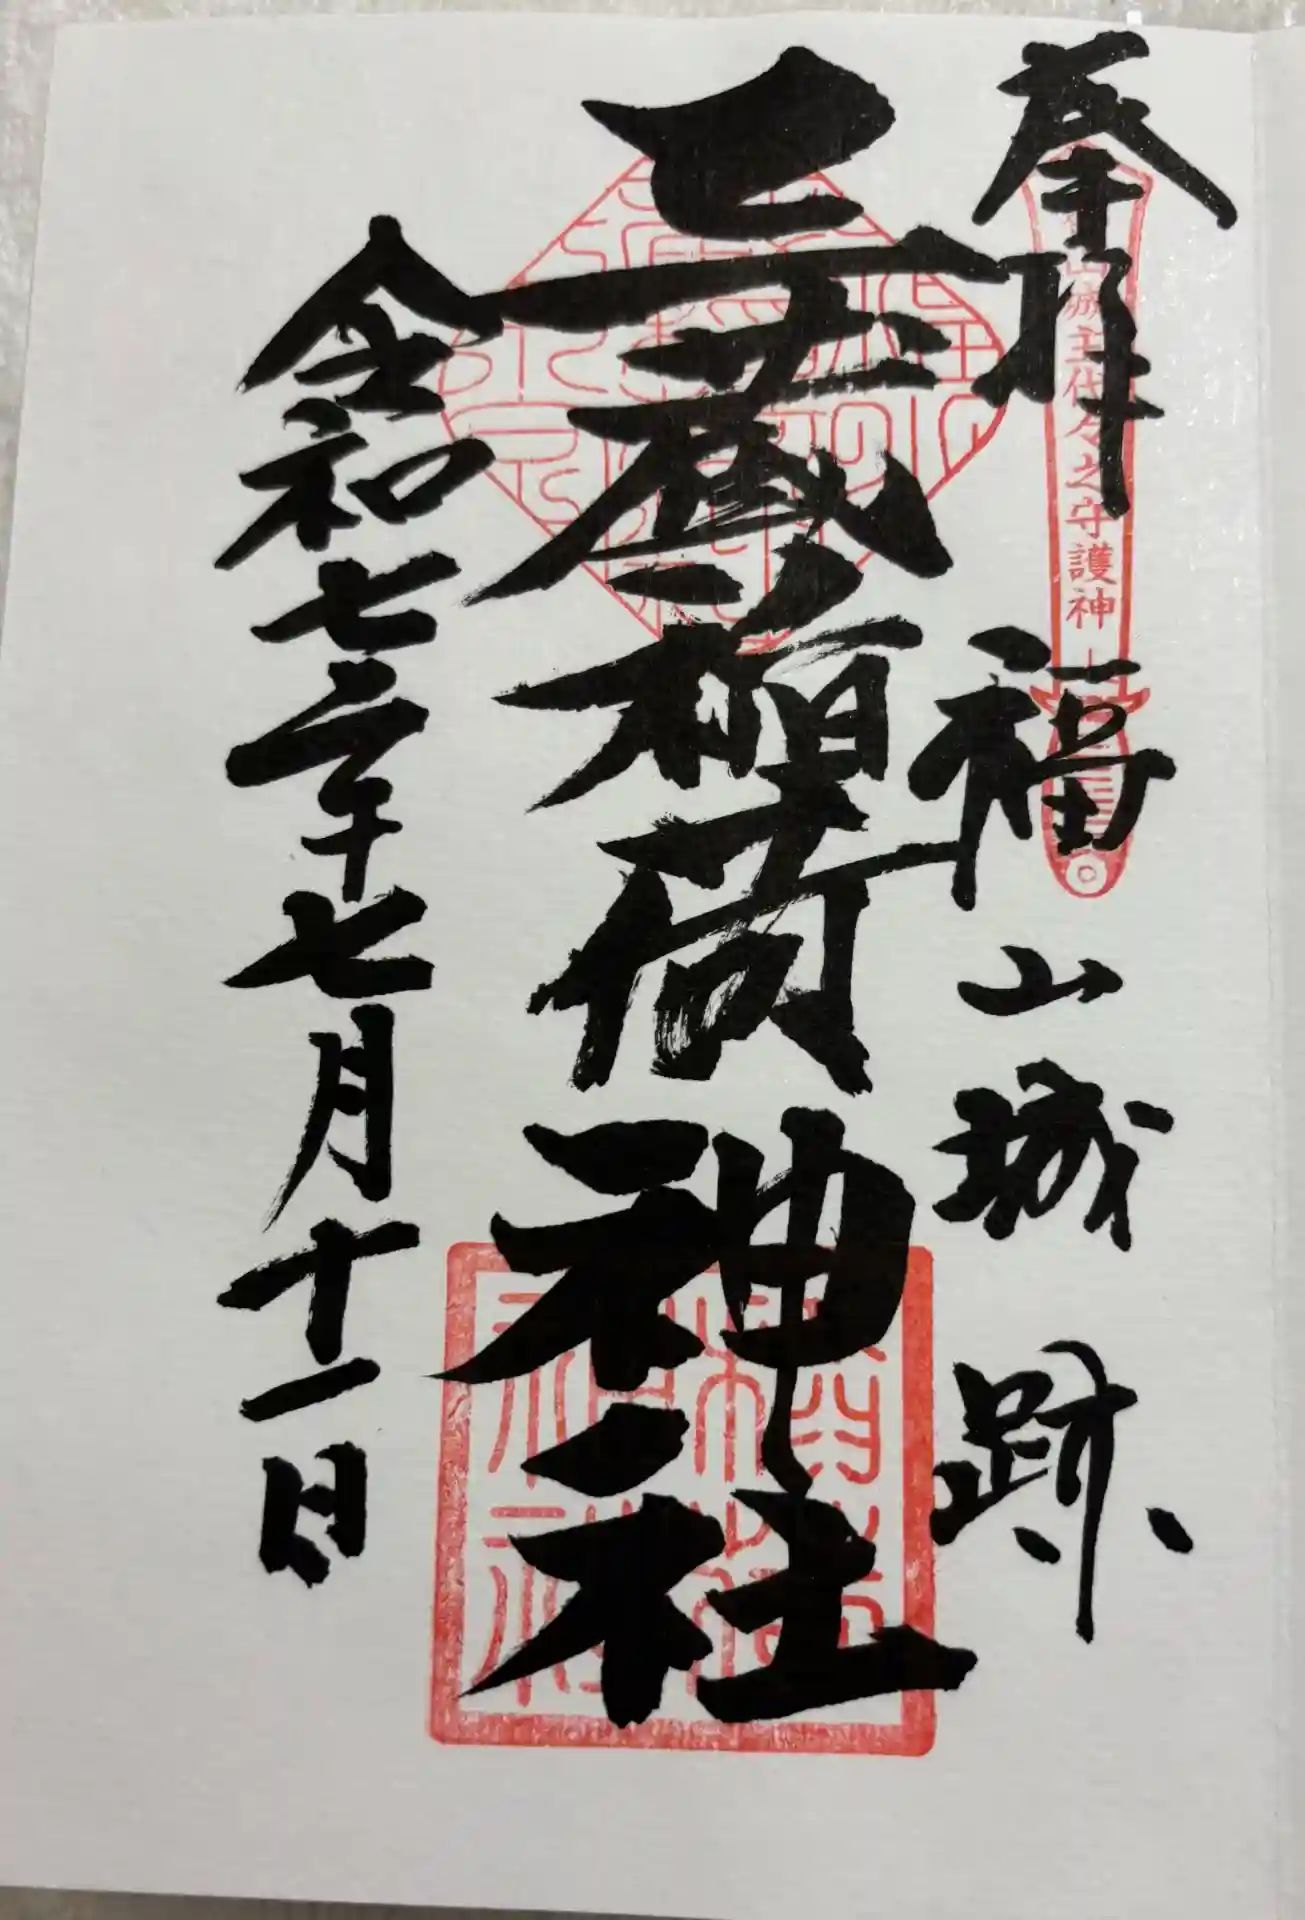 奉拝 福山城跡
山城主代々之守護神
三蔵稲荷神社
令和七年七月十一日